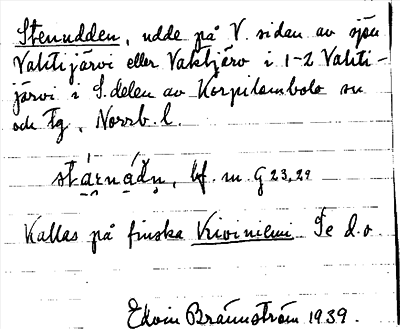 Stenudden, udde på V. sidan av sjön
Vahtijärvi eller Vahtjärv i 1-2 Vahti-
järvi i S.delen av Korpilombolo sn
och tg, Norrb. l.
stá̱rnáđn̥, bf. m. G 23,29
Kallas på finska Kiviniemi Se d.o.
Edvin Brännström 1939.